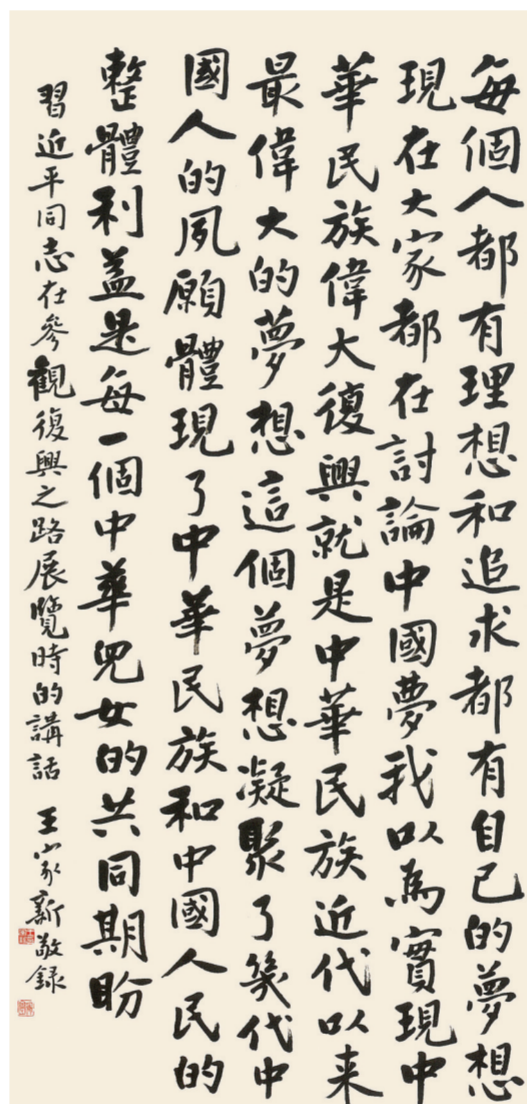 每個人都有理想和追求都有自己的夢想
現在大家都在討論中國夢我以為實現中
華民族偉大復興就是中華民族近代以来
最偉大的夢想這個夢想凝聚了幾代中
國人的夙願體現了中華民族和中國人民的
整體利益是每一個中華兒女的共同期盼
習近平同志在參觀復興之路展覽時的講話 王家新敬録